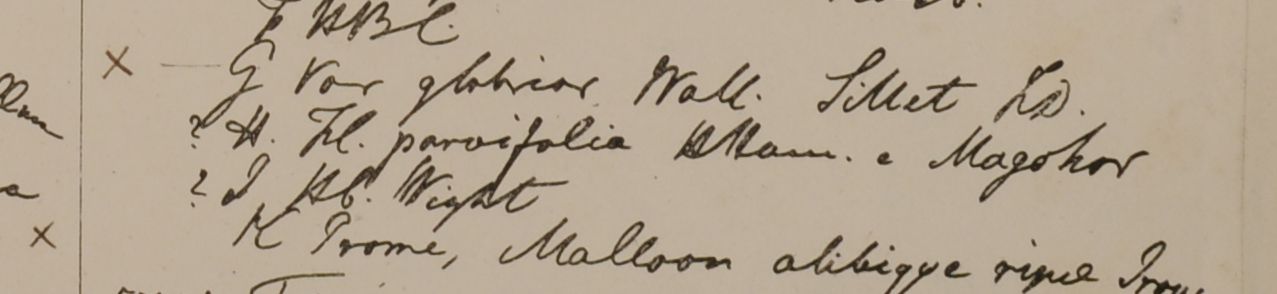 F HBC
G Var glabrior Wall. Sillet FD.
? H. Fl. parvifolia HHam. e Magohor
? I Hb. Wight
K Prome, Malloon alibique ripae